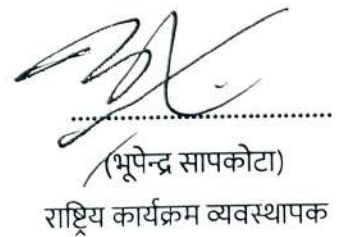 (भूपेन्द्र सापकोटा)
राष्ट्रिय कार्यक्रम व्यवस्थापक